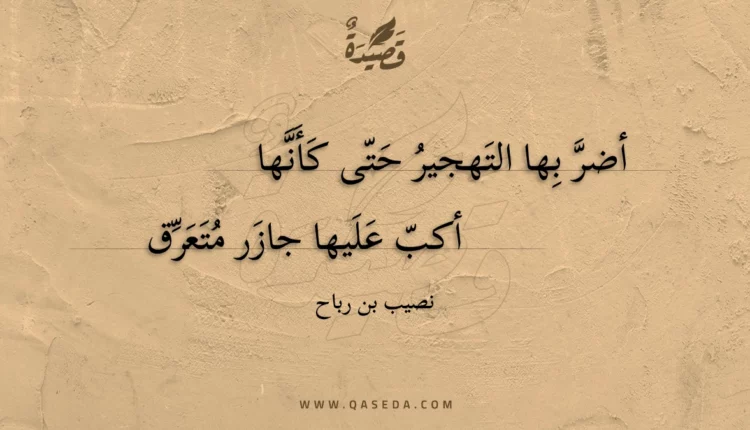 قَصِيْدَةٌ
أضرَّ بِها التَهجيرُ حَتّى كَأَنَّها
أكبّ عَلَيها جازَر مُتَعَرِّق
نصيب بن رباح
WWW.QASEDA.COM